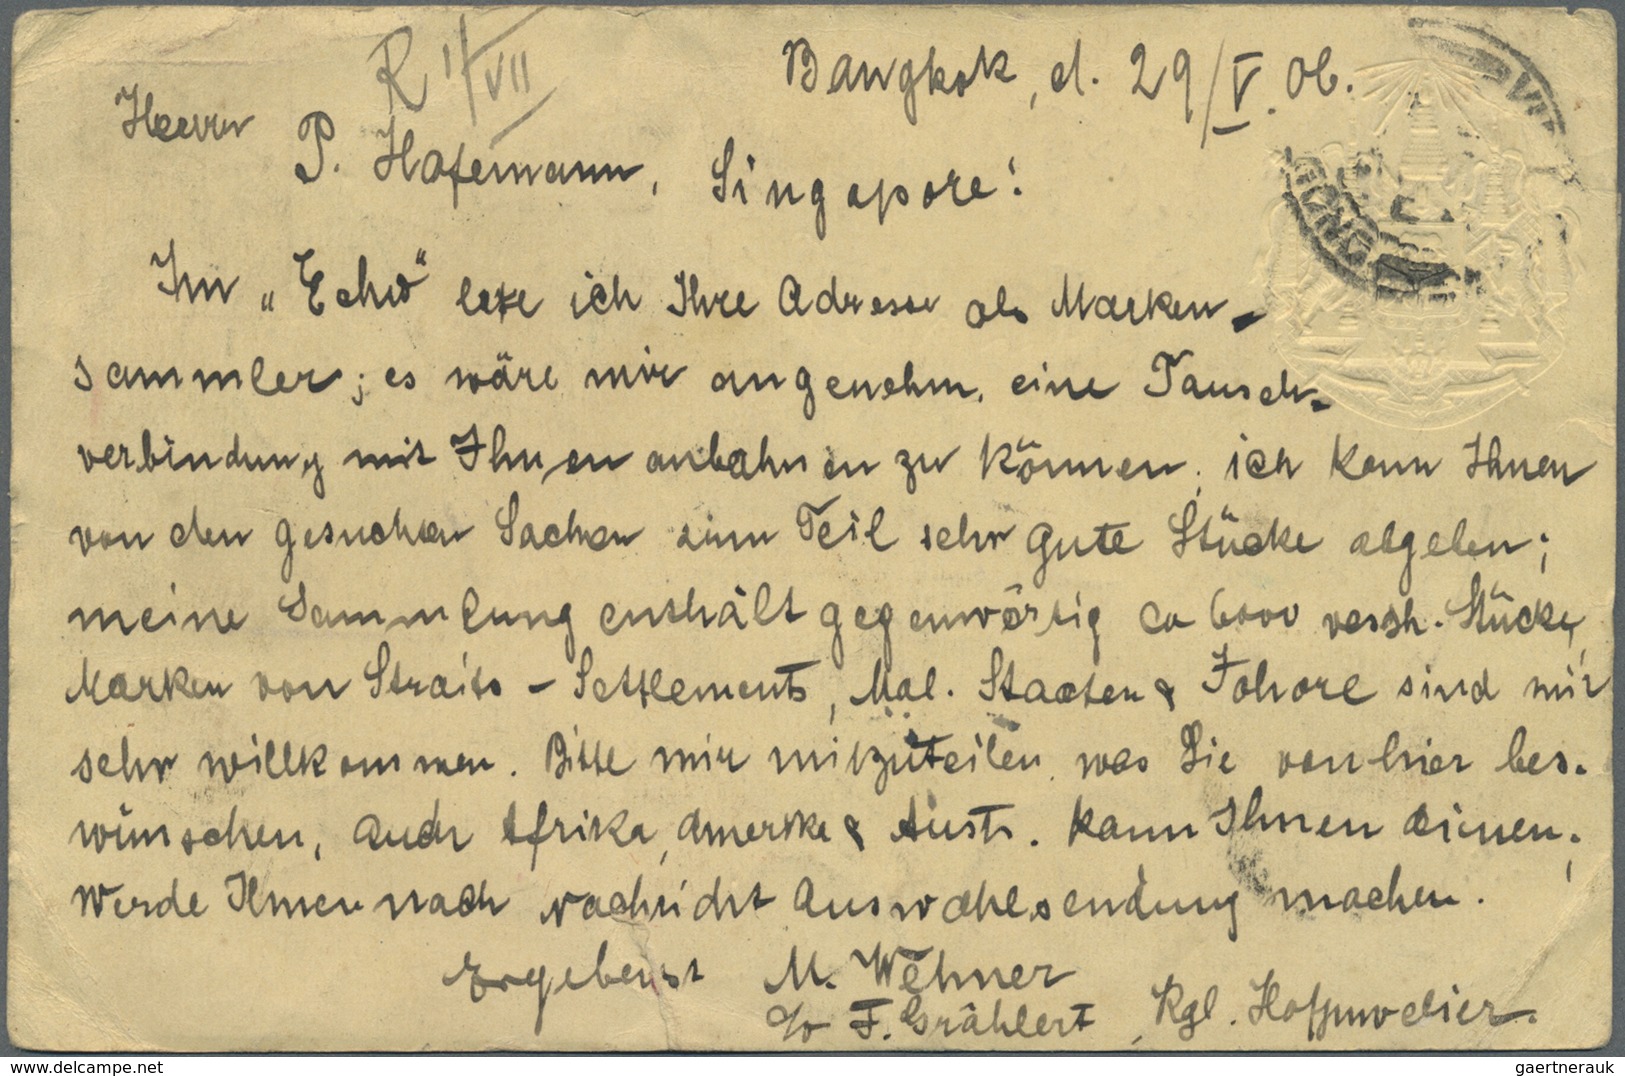 R 1/VII
Bangkok, d. 29/V. 06.
Herrn
P. Hafemann, Singapore!
Im „Echo" lese ich Ihre Adresse als Marken-
sammler; es wäre mir angenehm, eine Tausch-
verbindung mit Ihnen anbahnen zu können, ich kann Ihnen
von den gesuchten Sachen zum Teil sehr gute Stücke abgeben;
meine Sammlung enthält gegenwärtig ca 6000 versch. Stücke,
Marken von Straits - Settlements, Mal. Staaten & Johore sind mir
sehr willkommen. Bitte mir mitzuteilen was Sie von hier bes.
wünschen, auch Afrika, Amerika & Austr. kann Ihnen dienen;
werde Ihnen nach Nachricht Auswahlsendung machen.
Ergebenst M. Wehner
c/o F. Grählert, Kgl. Hofjuwelier.
www.delcampe.net
gaertnerauk